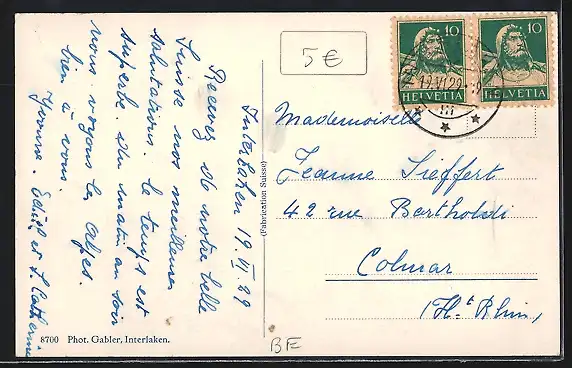 Interlaken 19.VI.29
Recevez de notre belle
Suisse nos meilleures
salutations. le temps est
superbe. du matin au soir
nous voyons les Alpes.
bien à vous.
Yvonne. Edwige et S. Catherine
8700 Phot. Gabler, Interlaken.
(Fabrication Suisse)
5 €
10
HELVETIA
10
HELVETIA
19.VI.29
III
Mademoiselle
Jeanne Sieffert
42 rue Bartholdi
Colmar
(Ht Rhin)
BF